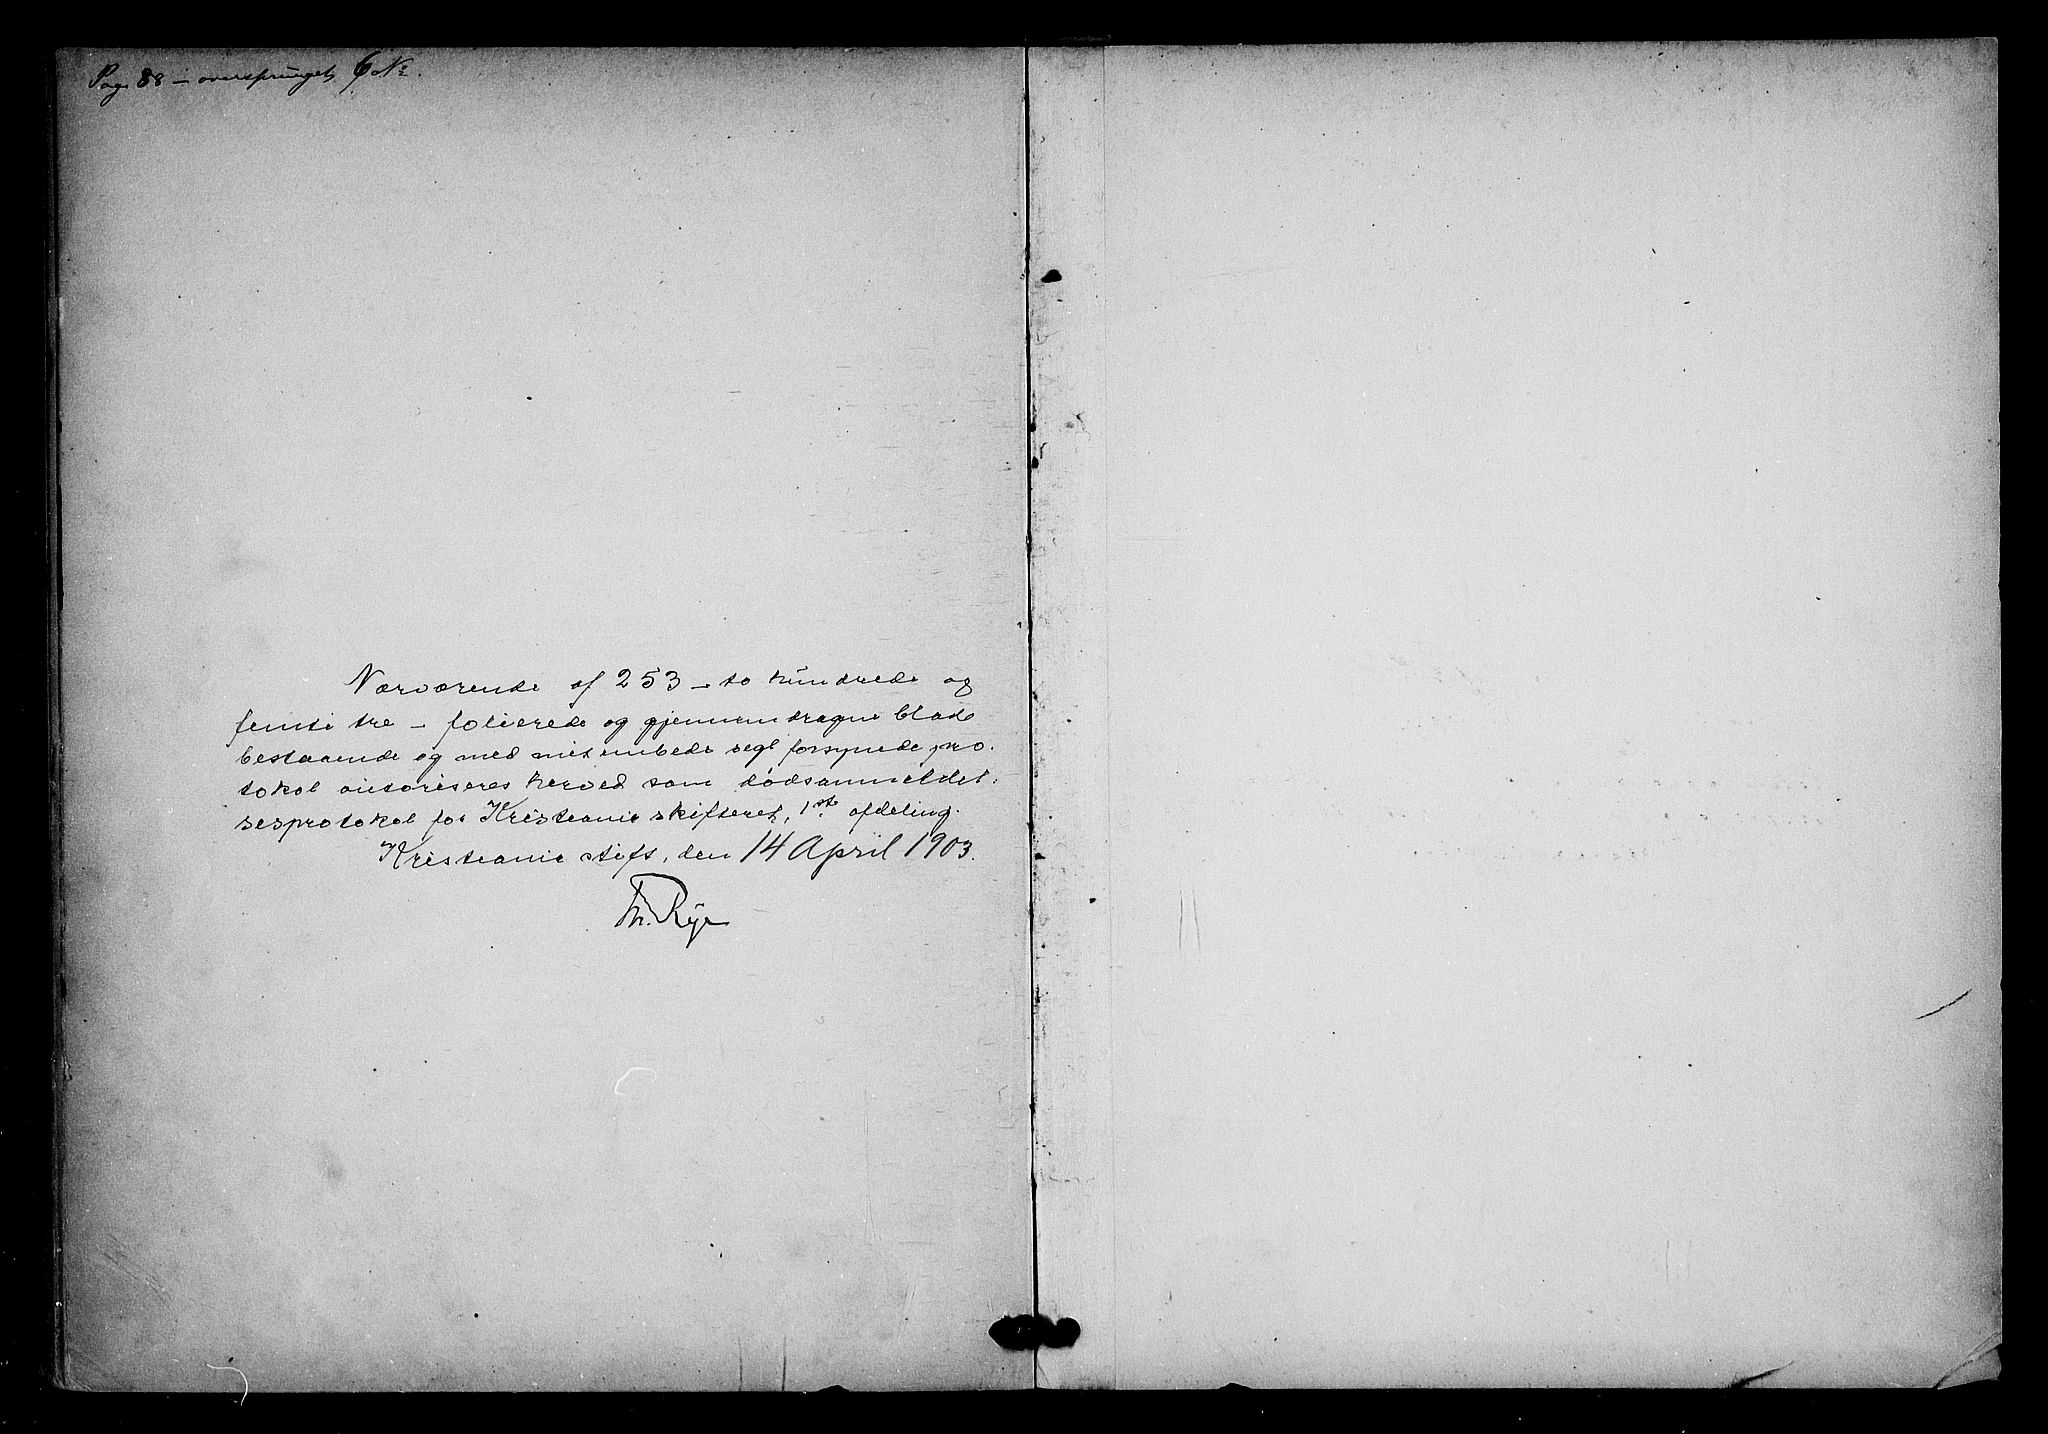 Pag. 88 — oversprunget 6 No.
Nærværende af 253 — to hundrede og
femti tre — folierede og gjennemdragne blade
bestaaende og med mit embeds segl forsynede pro-
tokol autoriseres herved som dødsanmeldel-
sesprotokol for Kristiania skifteret, 1ste afdeling.
Kristiania stift, den 14 April 1903.
Th. Rye